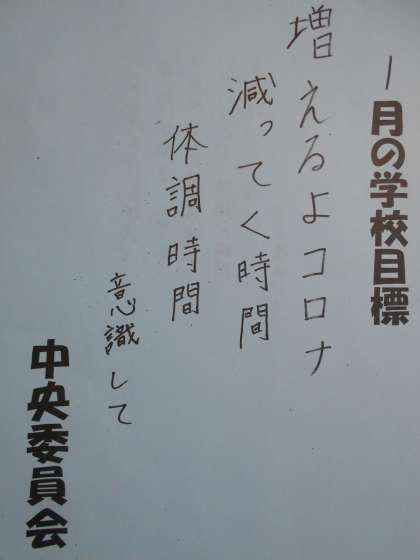 1月の学校目標
増えるよコロナ
減ってく時間
体調時間
意識して
中央委員会